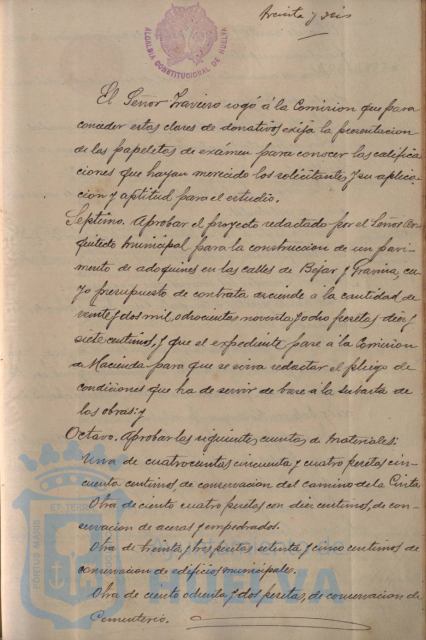 Treinta y seis
ALCALDÍA CONSTITUCIONAL DE HUELVA
El Señor Traviero rogó á la Comision que para
conceder estas clases de donativos exija la presentacion
de las papeletas de exámen para conocer las califica
ciones que hayan merecido los solicitantes y su aplica-
cion y aptitud para el estudio.
Septimo. Aprobar el proyecto redactado por el Señor Ar
quitecto municipal para la construccion de un pavi-
mento de adoquines en las calles de Bejar y Gravina, cu-
yo presupuesto de contrata asciende á la cantidad de
veinte y dos mil, ochocientas noventa y ocho pesetas diez y
siete centimos, y que el expediente pase á la Comision
de Hacienda para que se sirva redactar el pliego de
condiciones que ha de servir de base á la subasta de
las obras: y
Octavo. Aprobar las siguientes cuentas de materiales:
Una de cuatrocientas cincuenta y cuatro pesetas cin-
cuenta centimos, de conservacion del camino de la Cinta
Otra de ciento cuatro pesetas con diez centimos, de con-
servacion de aceras y empedrados.
Otra de treinta y tres pesetas setenta y cinco centimos de
conservacion de edificios municipales.
Otra de ciento ochenta y dos pesetas, de conservacion de
Cementerio.
PORTUS MARIS
ET TERRAE
Ayuntamiento de
HUELVA